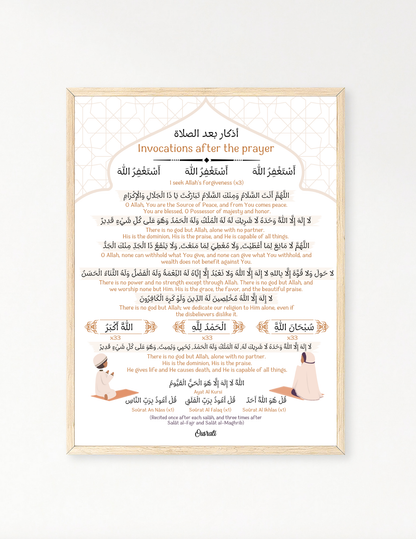 أذكار بعد الصلاة
Invocations after the prayer
أَسْتَغْفِرُ اللَّهَ أَسْتَغْفِرُ اللَّهَ أَسْتَغْفِرُ اللَّهَ
I seek Allah's Forgiveness (x3)
اللَّهُمَّ أَنْتَ السَّلَامُ وَمِنْكَ السَّلَامُ تَبَارَكْتَ يَا ذَا الْجَلَالِ وَالْإِكْرَامِ
O Allah, You are the Source of Peace, and from You comes peace.
You are blessed, O Possessor of majesty and honor.
لَا إِلَهَ إِلَّا اللَّهُ وَحْدَهُ لَا شَرِيكَ لَهُ لَهُ الْمُلْكُ وَلَهُ الْحَمْدُ وَهُوَ عَلَى كُلِّ شَيْءٍ قَدِيرٌ
There is no god but Allah, alone with no partner.
His is the dominion, His is the praise, and He is capable of all things.
اللَّهُمَّ لَا مَانِعَ لِمَا أَعْطَيْتَ، وَلَا مُعْطِيَ لِمَا مَنَعْتَ، وَلَا يَنْفَعُ ذَا الْجَدِّ مِنْكَ الْجَدُّ
O Allah, none can withhold what You give, and none can give what You withhold, and
wealth does not benefit against You.
لَا حَوْلَ وَلَا قُوَّةَ إِلَّا بِاللَّهِ لَا إِلَهَ إِلَّا اللَّهُ وَلَا نَعْبُدُ إِلَّا إِيَّاهُ لَهُ النِّعْمَةُ وَلَهُ الْفَضْلُ وَلَهُ الثَّنَاءُ الْحَسَنُ
There is no power and no strength except through Allah. There is no god but Allah, and
we worship none but Him. His is the grace, the Favor, and the beautiful praise.
لَا إِلَهَ إِلَّا اللَّهُ مُخْلِصِينَ لَهُ الدِّينَ وَلَوْ كَرِهَ الْكَافِرُونَ
There is no god but Allah, we dedicate our religion to Him alone, even if
the disbelievers dislike it.
سُبْحَانَ اللَّهِ الْحَمْدُ لِلَّهِ اللَّهُ أَكْبَرُ
x33 x33 x33
لَا إِلَهَ إِلَّا اللَّهُ وَحْدَهُ لَا شَرِيكَ لَهُ، لَهُ الْمُلْكُ وَلَهُ الْحَمْدُ، يُحْيِي وَيُمِيتُ، وَهُوَ عَلَى كُلِّ شَيْءٍ قَدِيرٌ
There is no god but Allah, alone with no partner.
His is the dominion, His is the praise.
He gives life and He causes death, and He is capable of all things.
اللَّهُ لَا إِلَهَ إِلَّا هُوَ الْحَيُّ الْقَيُّومُ
Ayat Al Kursi
قُلْ هُوَ اللَّهُ أَحَدٌ قُلْ أَعُوذُ بِرَبِّ الْفَلَقِ قُلْ أَعُوذُ بِرَبِّ النَّاسِ
Suårat An-Nåas (x1) Suårat Al Falaq (x1) Suårat Al Ikhlas (x1)
(Recited once after each salâh, and three times after
Salât al-Fajr and Salât al-Maghrib)